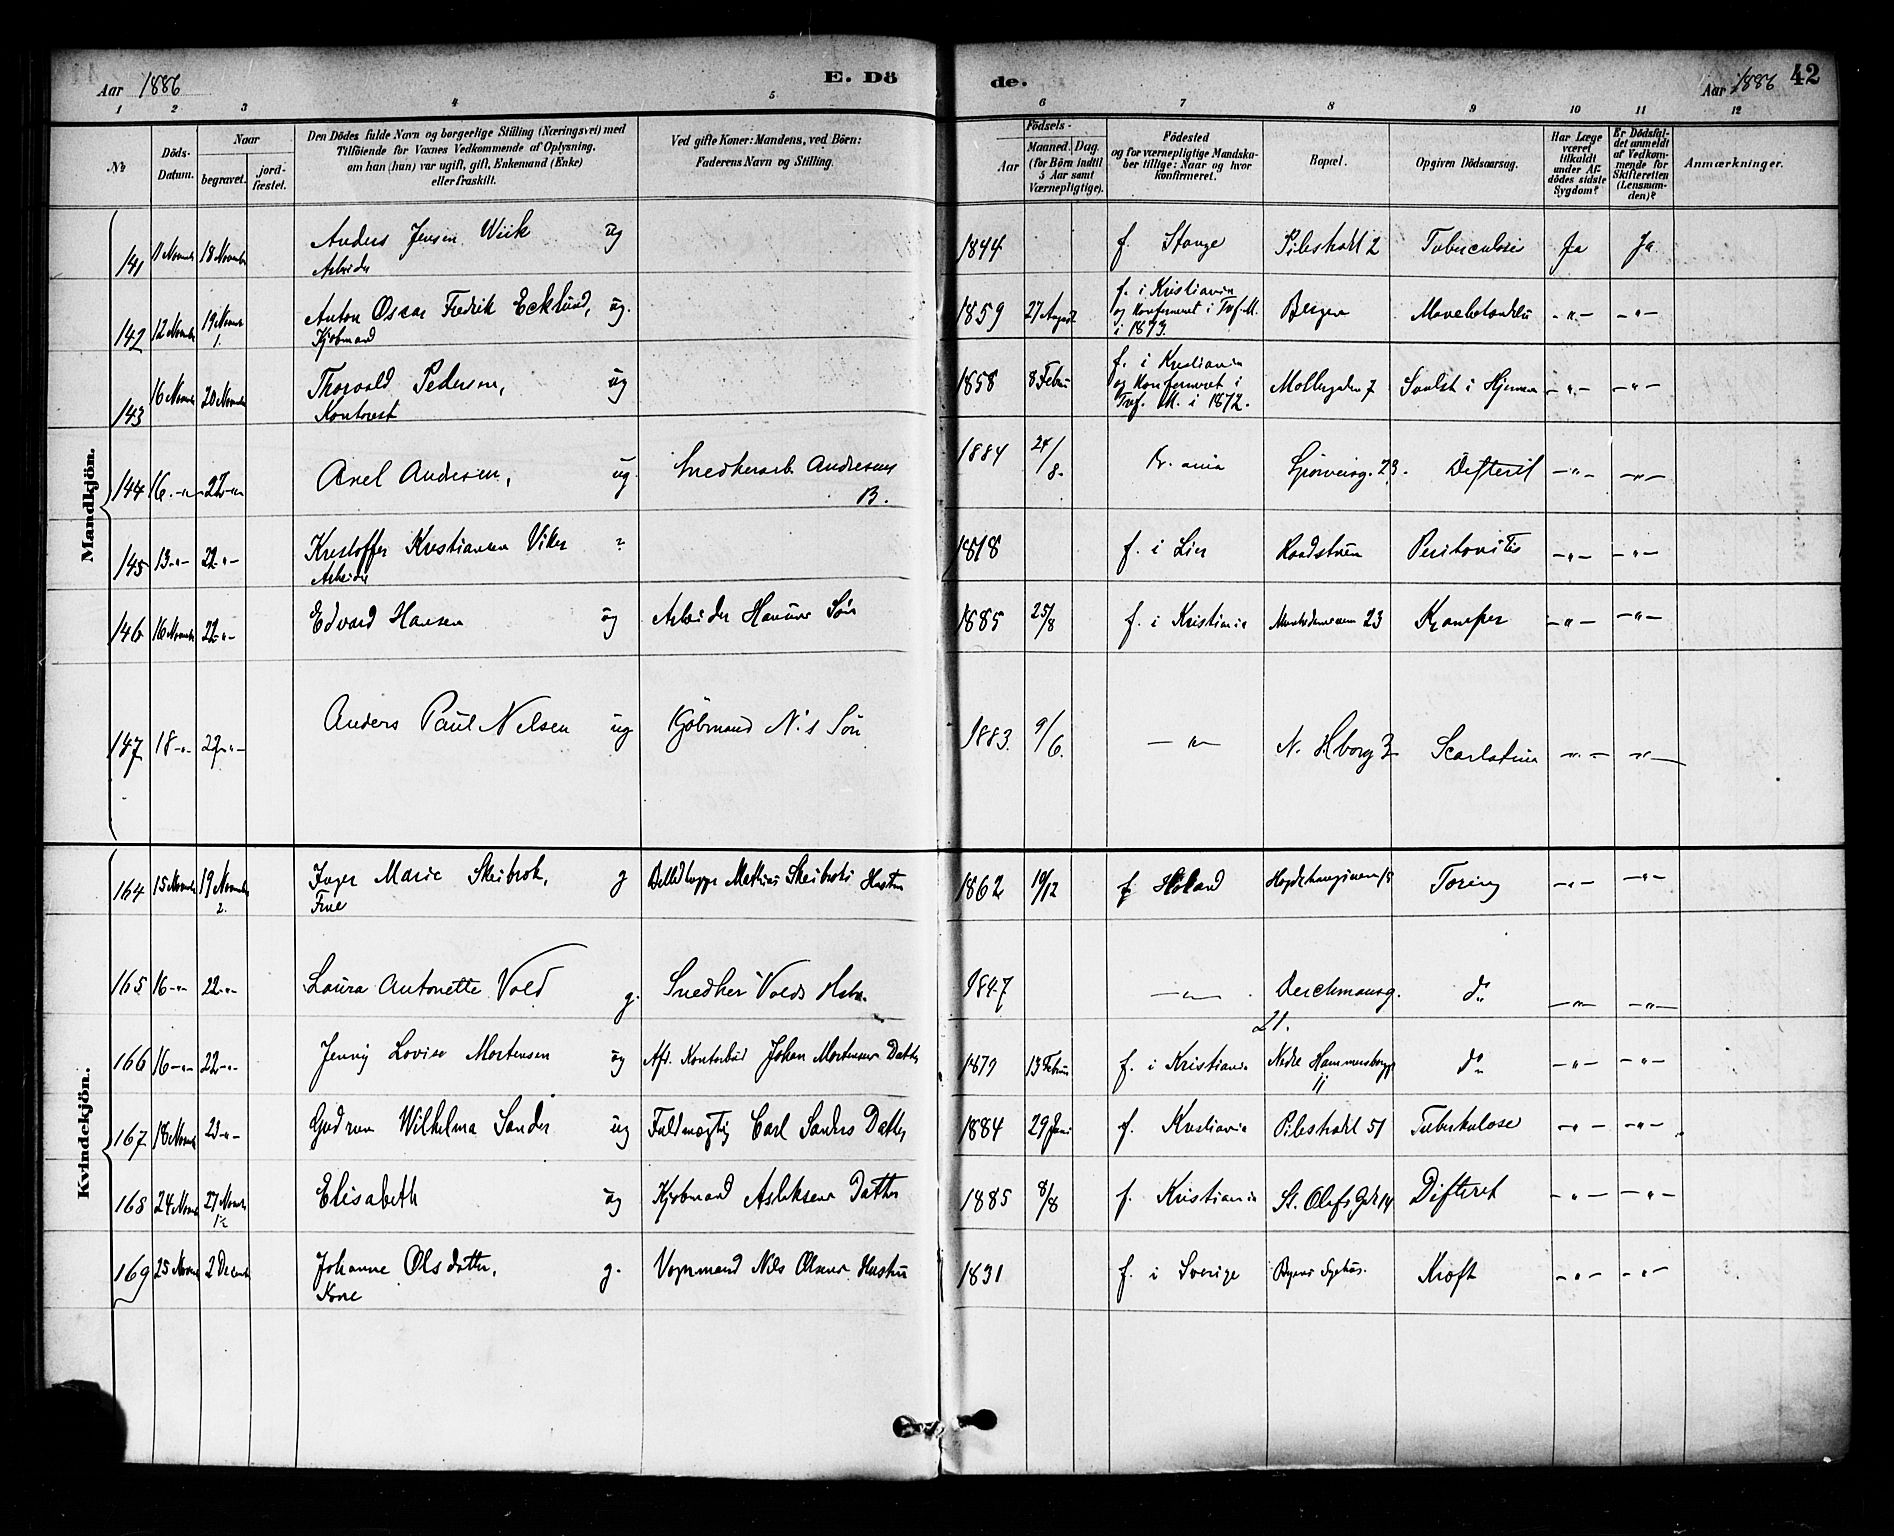 Aar 1886
E. Dö
de.
Aar 1886
42
1 2 3 4 5 6 7 8 9 10 11 12
No
Döds-
Datum.
Naar
begravet.
jord-
fæstet.
Den Dödes fulde Navn og borgerlige Stilling (Næringsvei) med
Tilföiende for Voxnes Vedkommende af Oplysning,
om han (hun) var ugift, gift, Enkemand (Enke)
eller fraskilt.
Ved gifte Koner: Mandens, ved Börn:
Faderens Navn og Stilling.
Födsels-
Aar
Maaned. Dag.
(for Börn indtil
5 Aar samt
Værnepligtige).
Födested
og for værnepligtige Mandska-
ber tillige: Naar og hvor
konfirmeret.
Bopæl.
Opgiven Dödsaarsag.
Har Læge
været
tilkaldt
under Af-
dödes sidste
Sygdom?
Er Dödsfal-
det anmeldt
af Vedkom-
mende for
Skifteretten
(Lensman-
den)?
Anmærkninger.
Mandkjön.
141 11 Novemb 18 Novemb Anders Jensen Wiik ug 1844 f. Stange Pilestrædt 2 Tuberculose Ja Ja
Arbeider
142 12 Novemb 19 Novemb Anton Oscar Fredrik Ecklund, ug. 1859 27 August f. i Kristiania Bergen -"- -"-
og konfirmeret i Tref. M.
Kjøbmand i 1873.
143 16 Novemb 20 Novemb Thorvald Pedersen, ug 1858 8 Febru f. i Kristiania Mollergaden 7 Svulst i Hjernen -"- -"-
og konfirmeret i
Kontorist Tref. M. i 1872.
144 16 -"- 22 -"- Axel Andersen, ug. Snedkerarb. Andresens 1884 24/8. Kr.ania 23. Difterit -"- -"-
B.
145 13 -"- 22 -"- Kristoffer Kristiansen Viker ? 1818 f. i Lier Peritonitis -"- -"-
Arbeider
146 16 Novemb 22 -"- Edvard Hansen ug Arbeider Hansens Søn 1885 25/8 f. i Kristiania 23 Kramper -"- -"-
147 18 -"- 22 -"- Anders Paul Nelsen ug Kjöbmand N.'s Sön 1883. 9/6. -"- N. Hborg 3 Scarlatina -"- -"-
Kvindekjön.
164 15 Novemb 19 Novemb Inger Marie Skeibrok, g Mathias Skeibroks Hustru 1862 19/12 f Höland Tæring -"- -"-
2. Frue
165 16 -"- 22 -"- Laura Antonette Vold g. Snedker Volds Hstr. 1847 -"- Deichmansg. do -"- -"-
21.
166 16 -"- 22 -"- Jenny Lovise Mortensen ug Johan Mortensens Datter 13 Februa f. i Kristiania Nedre Hammersborgg do -"- -"-
11
167 18 Novemb -"- Gudrun Wilhelma Sander ug Fuldmægtig Carl Sanders Datter 1884 29 Juni f. Kristiania Pilestrædt 51 Tuberkulose -"- -"-
168 24 Novemb 27 Novemb Elisabeth ug Kjøbmand Aslaksens Datter 1885 8/8 f. Kristiania St. Olafs Gde 14 Difterit -"- -"-
169 25 Novemb 2 Decemb Johanne Olsdatter, g. Vognmand Nils Olsens Hustru 1831 f. i Sverige Byens Sygehus. Kræft -"- -"-
Kone